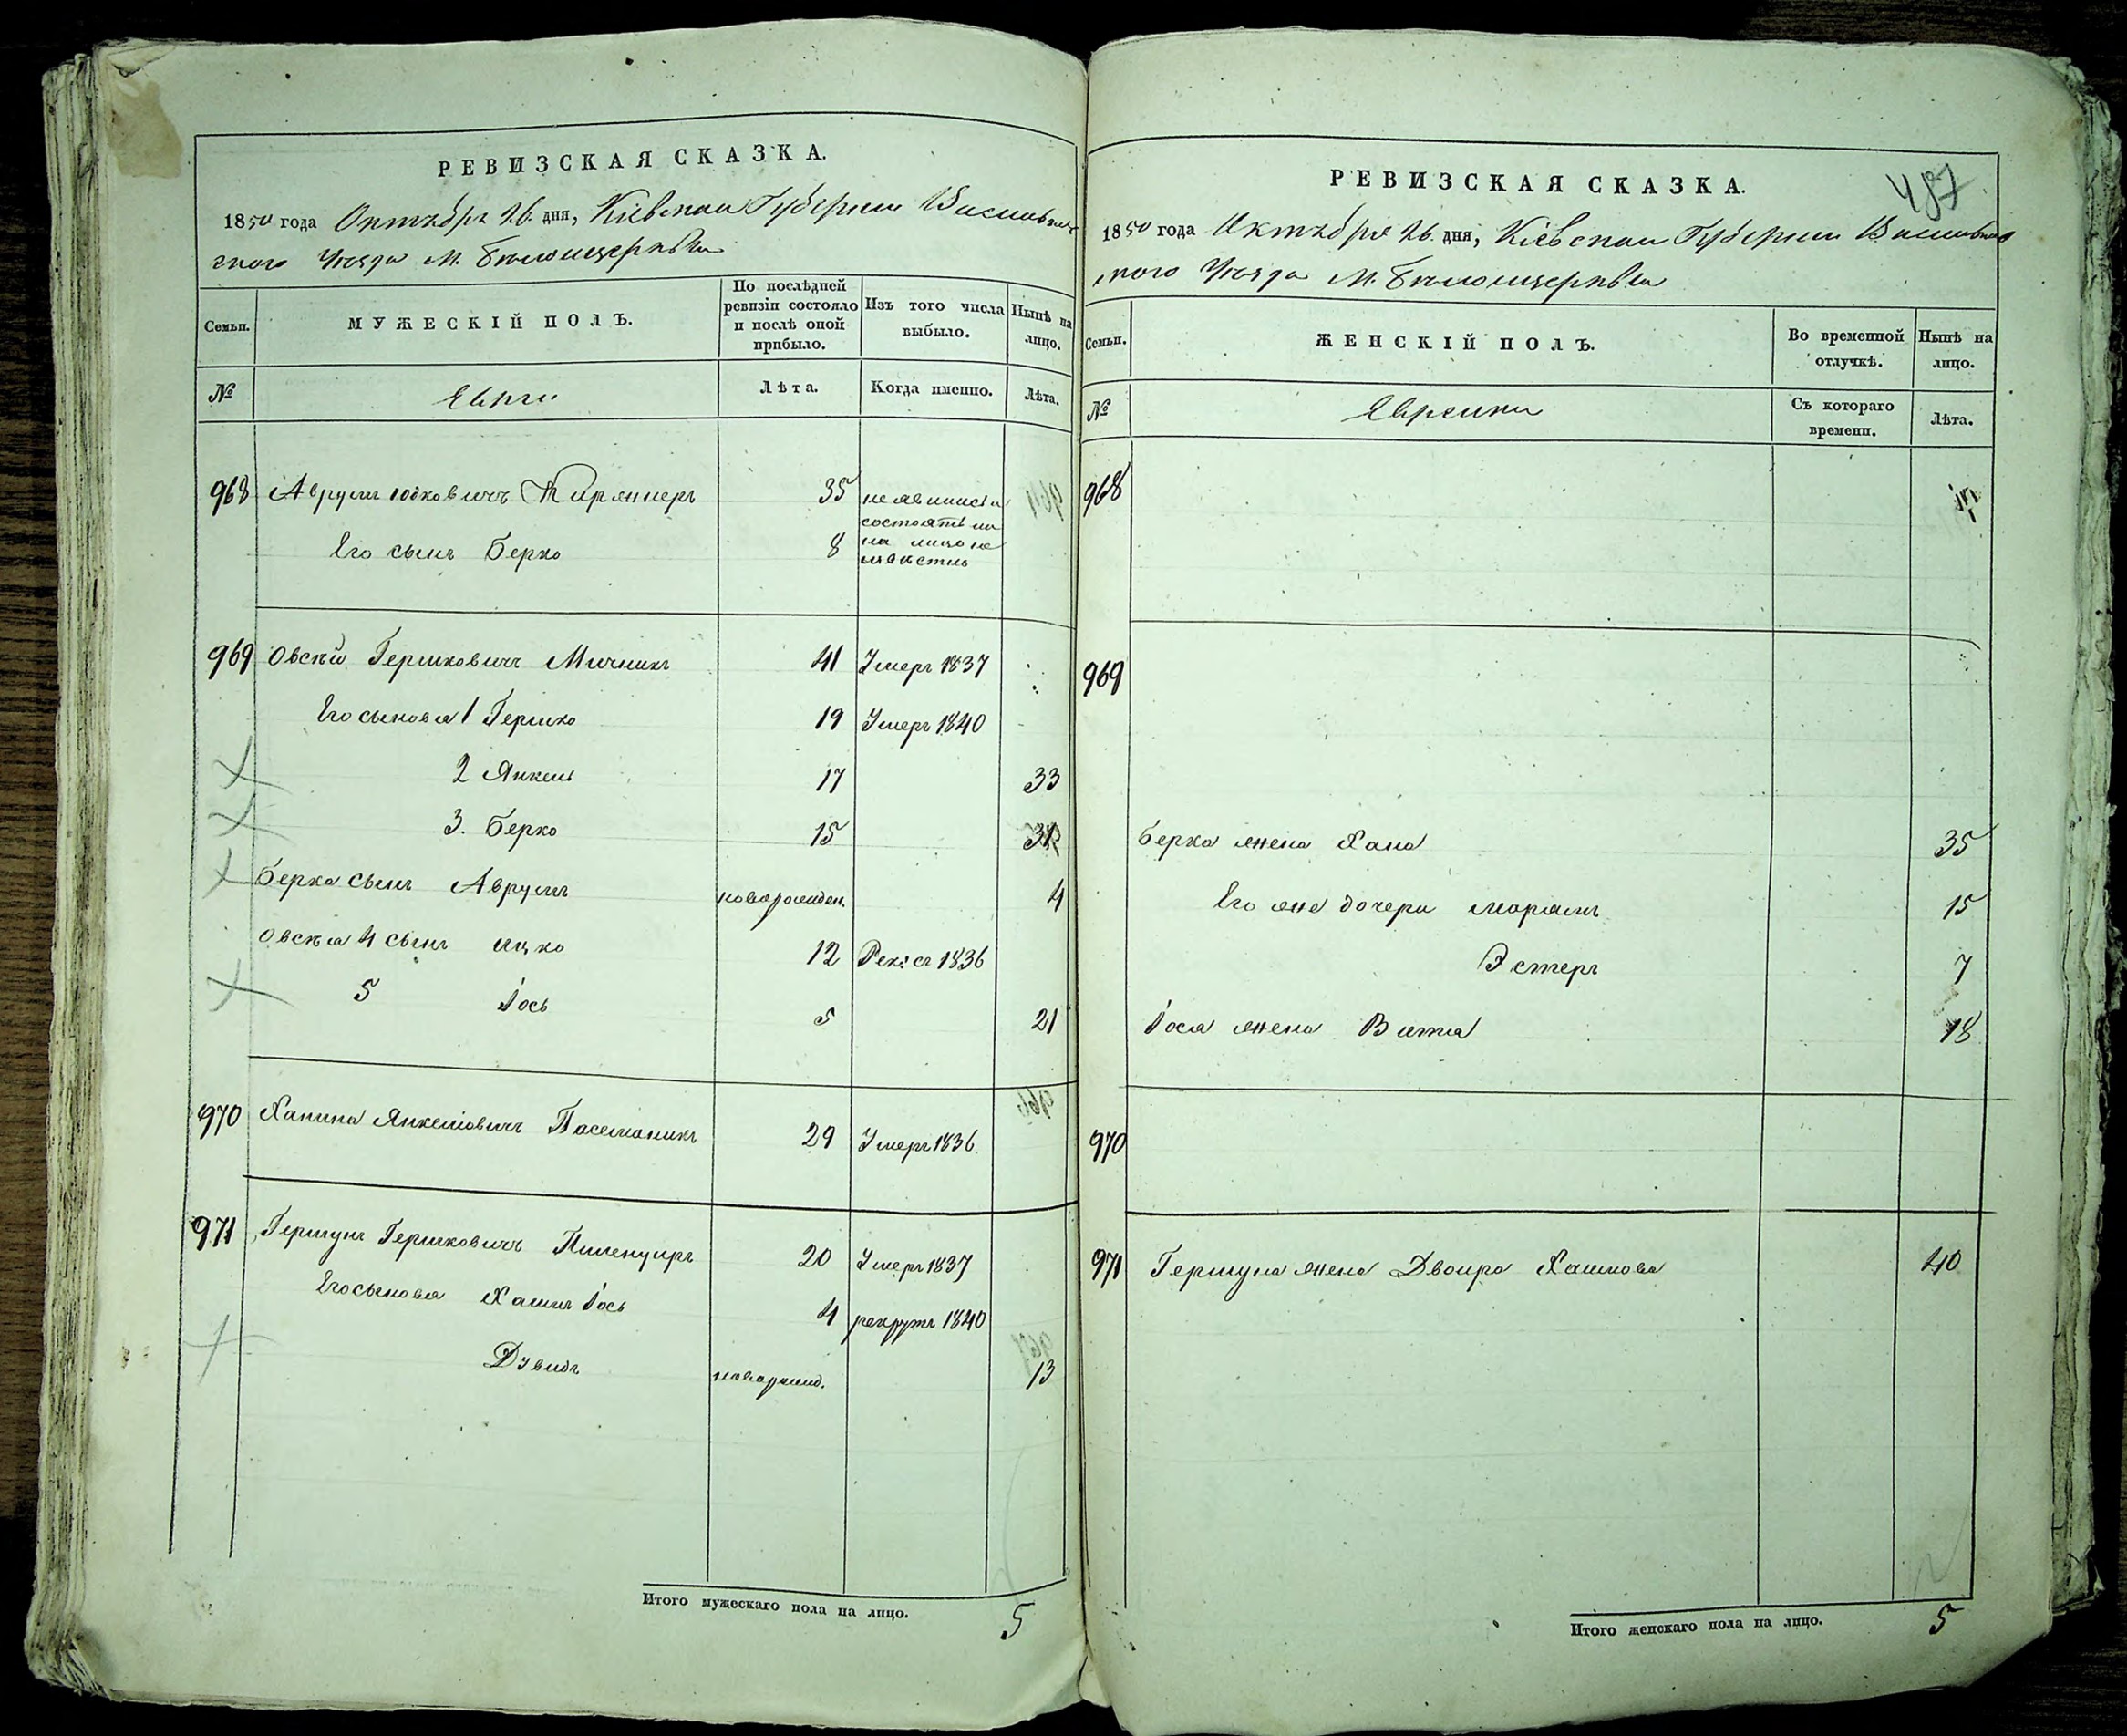 РЕВИЗСКАЯ СКАЗКА.
1850 года Октября 26. дня, Кіевской Губерніи Васильков
ского Уезда М. Белоцерквы
Семьи. МУЖЕСКІЙ ПОЛЪ. По послѣдней ревизіи состояло и послѣ оной прибыло. Изъ того числа выбыло. Нынѣ на лицо.
№ Евреи Лѣта. Когда именно. Лѣта.
968 Аврумъ Юдковичъ 35 не
состоятъ ли
Его сынъ Берко 8 на лицо не
извѣстно
969 Овсѣй Гершковичъ Мичникъ 41 Умеръ 1837
Его сыновья 1 Гершко 19 Умеръ 1840
2 Янкель 17 33
3. Берко 15 31
Берка сынъ Аврумъ новорожден. 4
Овсѣя 4 сынъ Ицко 12 Рек: съ 1836
5 Іось 5 21
970 Ханина Янкелiовичъ 29 Умеръ 1836
971 Гершунъ Гершковичъ 20 Умеръ 1837
Его сыновья Хаимъ Іось 4 рекрутъ 1840
Дувидъ новорожд. 13
Итого мужескаго пола на лицо. 5
487
РЕВИЗСКАЯ СКАЗКА.
1850 года Октября 26. дня, Кіевской Губерніи Васильков
ского Уезда М. Белоцерквы
Семьи. ЖЕНСКІЙ ПОЛЪ. Во временной отлучкѣ. Нынѣ на лицо.
№ Еврейки Съ котораго времени. Лѣта.
968
969
Берка жена Хана 35
Его же дочери Марямъ 15
Эстеръ 7
Іося жена 18
970
971 Гершуна жена Двойра Хаимова 40
Итого женскаго пола на лицо. 5